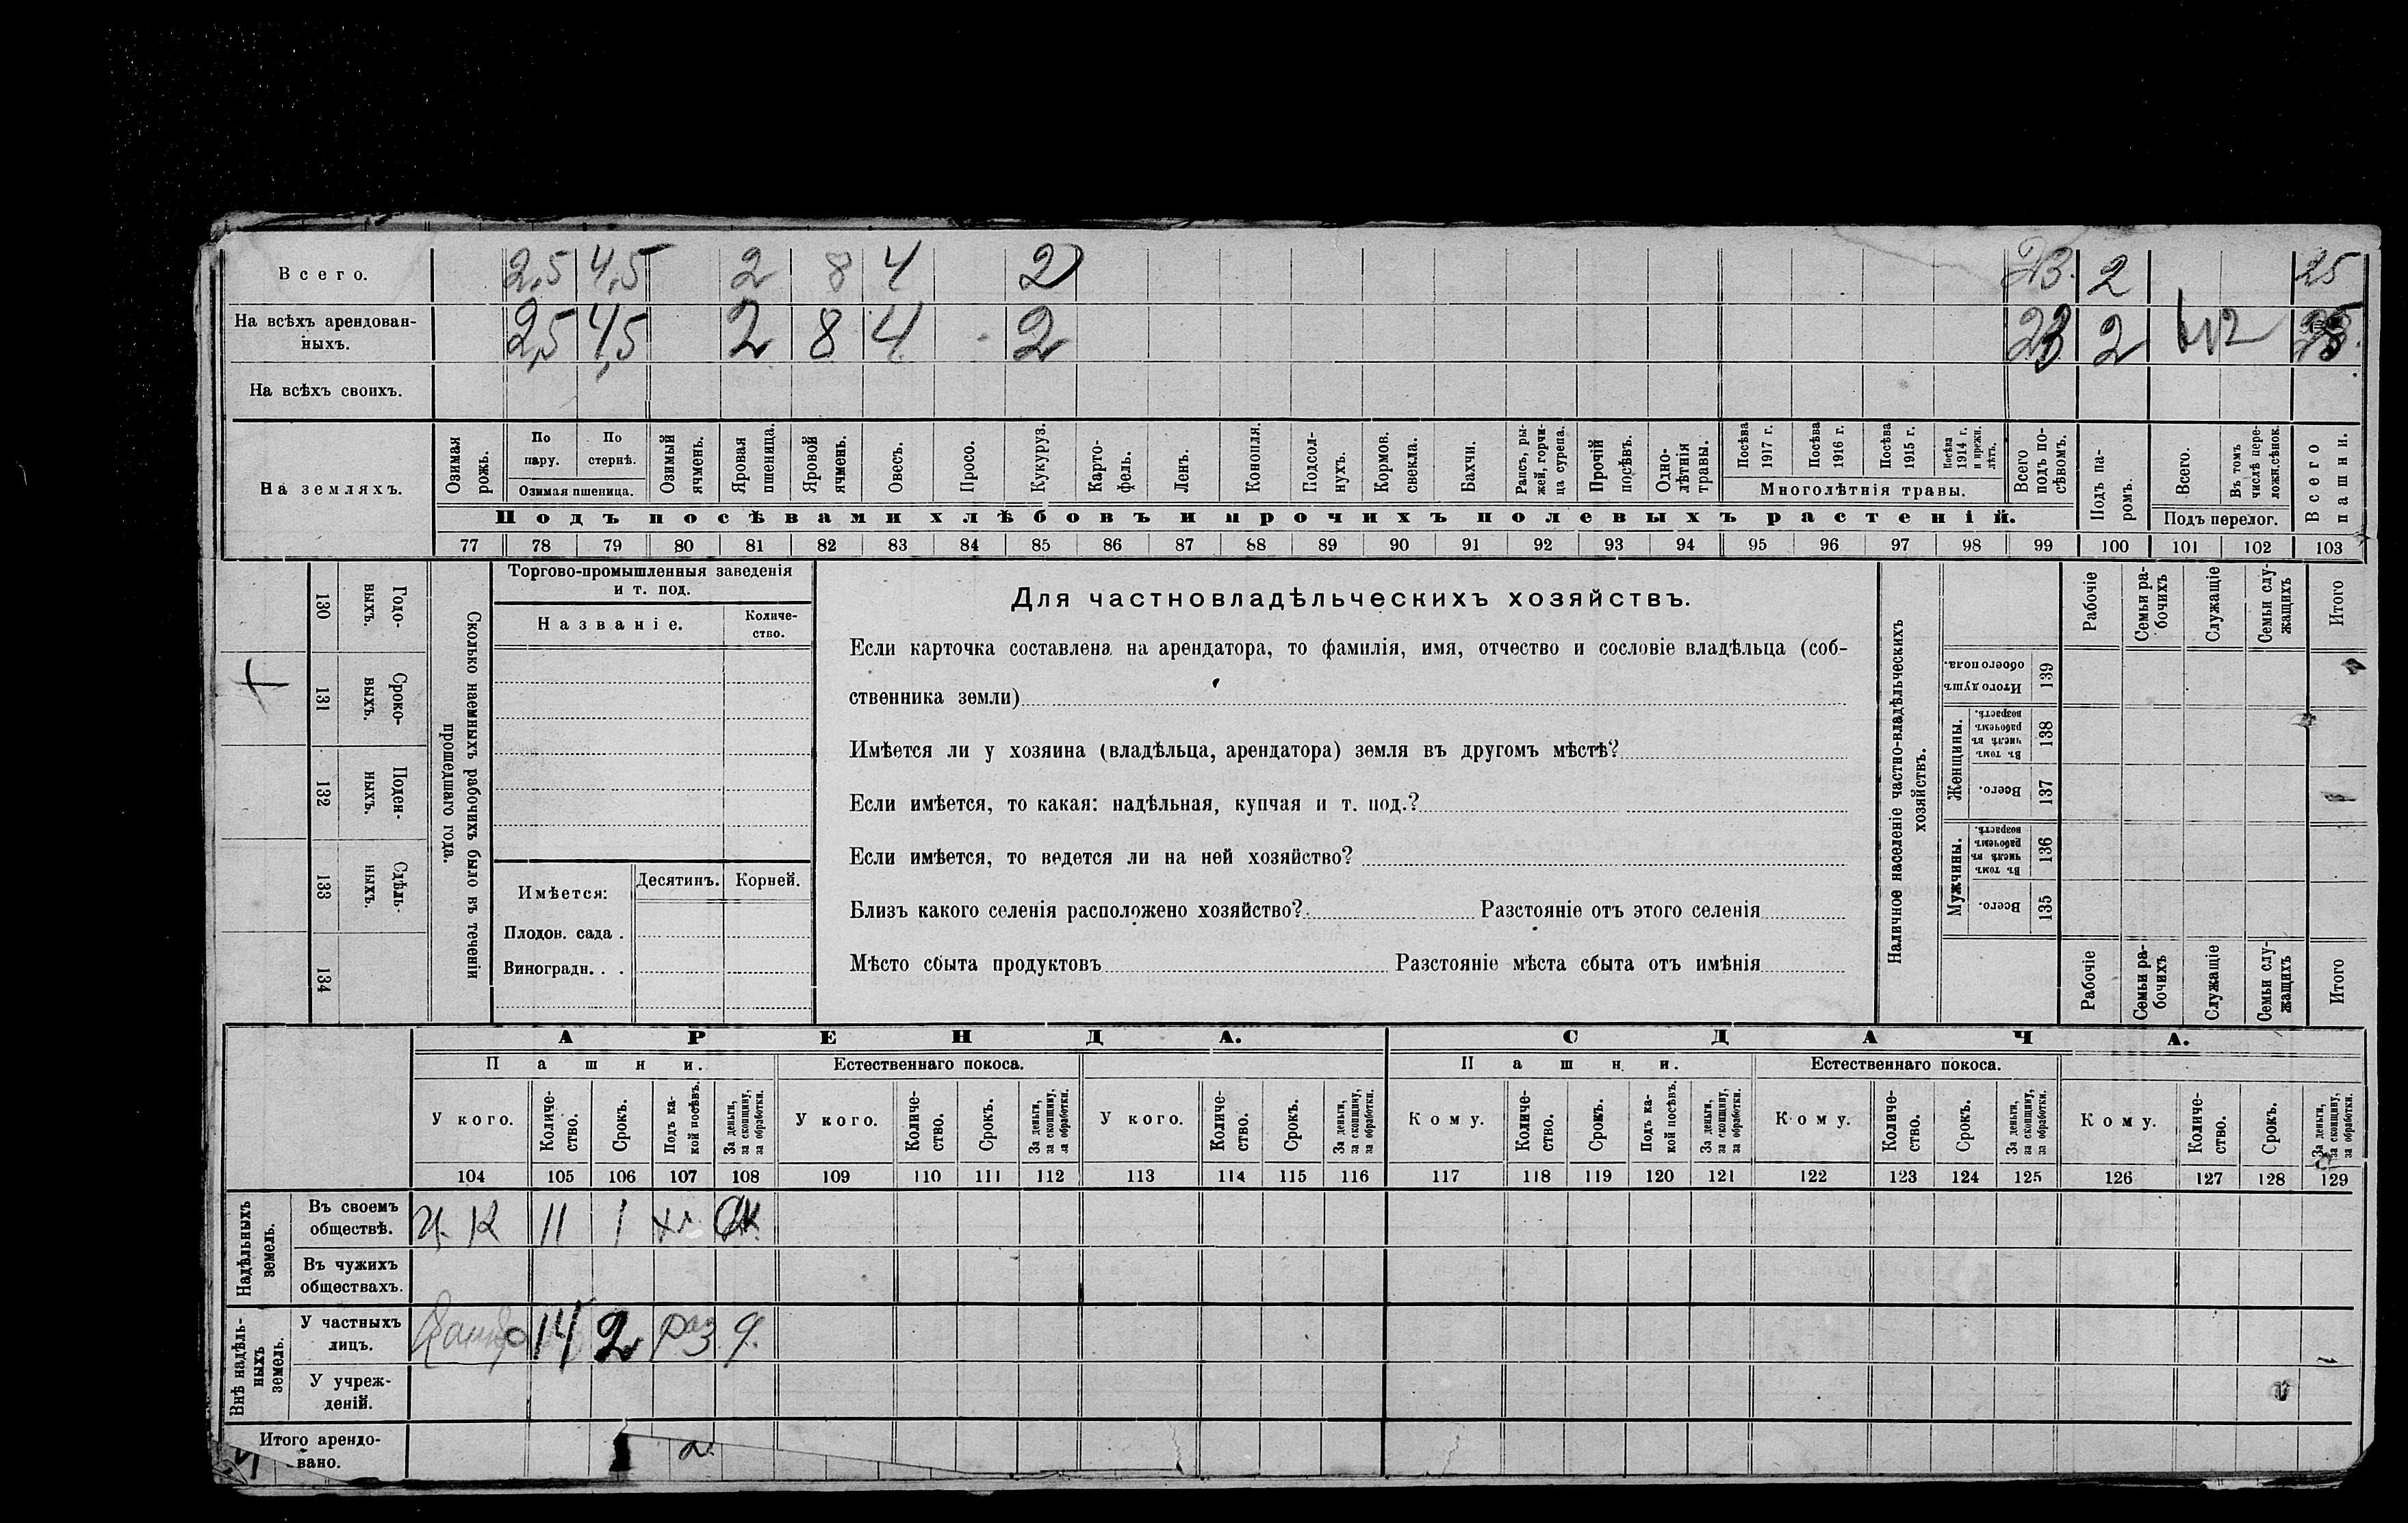 Всего. 2,5 4,5 2 8 4 2 23. 2 25
На всѣхъ арендован-
ныхъ. 2,5 4,5 2 8 4 2 23 2
На всѣхъ своихъ.
На земляхъ.
Озимая рожь.
По пару.
По стернѣ.
Озимая пшеница.
Озимый ячмень.
Яровая пшеница.
Яровой ячмень.
Овесъ.
Просо.
Кукуруз.
Карто-
фель.
Ленъ.
Конопля.
Подсол-
нухъ.
Кормов. свекла.
Бахчи.
Рапсъ, ры-
жей, горчи-
ца сурепа.
Прочій посѣвъ.
Одно-
лѣтнія травы.
Посѣва 1917 г.
Посѣва 1916 г.
Посѣва 1915 г.
Посѣва 1914 г. и прежн. лѣтъ.
Многолѣтнія травы.
Всего подъ по-
сѣвомъ.
Подъ па-
ромъ.
Всего.
Въ томъ числѣ пере-
ложн.сѣнок.
Подъ перелог.
Всего пашни.
Подъ посѣвами хлѣбовъ и прочихъ полевыхъ растеній.
77 78 79 80 81 82 83 84 85 86 87 88 89 90 91 92 93 94 95 96 97 98 99 100 101 102 103
130 131 132 133 134
Годо-
выхъ.
Сроко-
выхъ.
Поден-
ныхъ.
Сдѣль-
ныхъ.
Сколько наемныхъ рабочихъ было въ теченіи
прошедшаго года.
Торгово-промышленныя заведенія
и т. под.
Названіе.
Количе-
ство.
Имѣется:
Десятинъ. Корней.
Плодов. сада .
Виноградн. . .
Для частновладѣльческихъ хозяйствъ.
Если карточка составлена на арендатора, то фамилія, имя, отчество и сословіе владѣльца (соб-
ственника земли)
Имѣется ли у хозяина (владѣльца, арендатора) земля въ другомъ мѣстѣ?
Если имѣется, то какая: надѣльная, купчая и т. под.?
Если имѣется, то ведется ли на ней хозяйство?
Близъ какого селенія расположено хозяйство? Разстояніе отъ этого селенія
Мѣсто сбыта продуктовъ Разстояніе мѣста сбыта отъ имѣнія
Наличное населеніе частно-владѣльческихъ
хозяйствъ.
Рабочіе
Семьи ра-
бочихъ
Служащіе
Семьи слу-
жащихъ
Итого
Итого душъ обоего пола. 139
Женщины.
Въ томъ числѣ въ рабочемъ возрастѣ. 138
Всего. 137
Мужчины.
Въ томъ числѣ въ рабочемъ возрастѣ. 136
Всего. 135
Рабочіе
Семьи ра-
бочихъ
Служащіе
Семьи слу-
жащихъ
Итого
АРЕНДА. СДАЧА.
Пашни. Естественнаго покоса. Пашни. Естественнаго покоса.
У кого.
Количе-
ство.
Срокъ.
Подъ ка-
кой посѣвъ.
За деньги,
за скопщину,
за обработки.
У кого.
Количе-
ство.
Срокъ.
За деньги,
за скопщину,
за обработки.
У кого.
Количе-
ство.
Срокъ.
За деньги,
за скопщину,
за обработки.
Кому.
Количе-
ство.
Срокъ.
Подъ ка-
кой посѣвъ.
За деньги,
за скопщину,
за обработки.
Кому.
Количе-
ство.
Срокъ.
За деньги,
за скопщину,
за обработки.
Кому.
Количе-
ство.
Срокъ.
За деньги,
за скопщину,
за обработки.
104 105 106 107 108 109 110 111 112 113 114 115 116 117 118 119 120 121 122 123 124 125 126 127 128 129
Надѣльныхъ
земель.
Въ своемъ
обществѣ. 11 1
Въ чужихъ
обществахъ.
Внѣ надѣль-
ныхъ
земель.
У частныхъ
лицъ. 14 2 раз
У учреж-
деній.
Итого арендо-
вано.